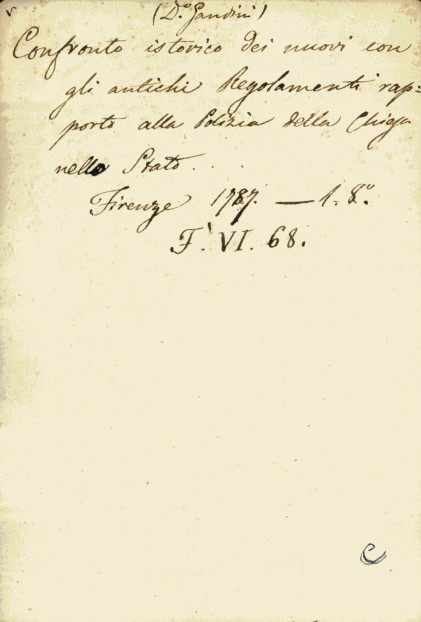 (D.º Gandini)
Confronto istorico dei nuovi con
gli antichi Regolamenti rap=
porto alla Polizia della Chiesa
nello Stato...
Firenze 1787. — 1. 8.º
F. VI. 68.
C